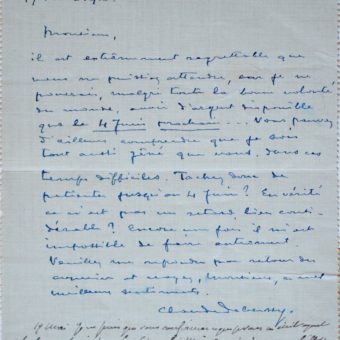 Monsieur,
il est extrêmement regrettable que
vous ne puissiez attendre, car je ne
pourrai, malgré toute la bonne volonté
du monde, avoir d'argent disponible
que le 4 Juin prochain... Vous pouvez
d'ailleurs comprendre que je sois
tout aussi gêné que vous, dans ces
temps difficiles. Tachez donc de
patienter jusqu'au 4 Juin? En vérité
ce n'est pas un retard bien consi-
dérable? Encore une fois il m'est
impossible de faire autrement.
Veuillez me répondre par retour du
courrier et croyez, Monsieur, à mes
meilleurs sentiments.
Claude Debussy.
19 Mai